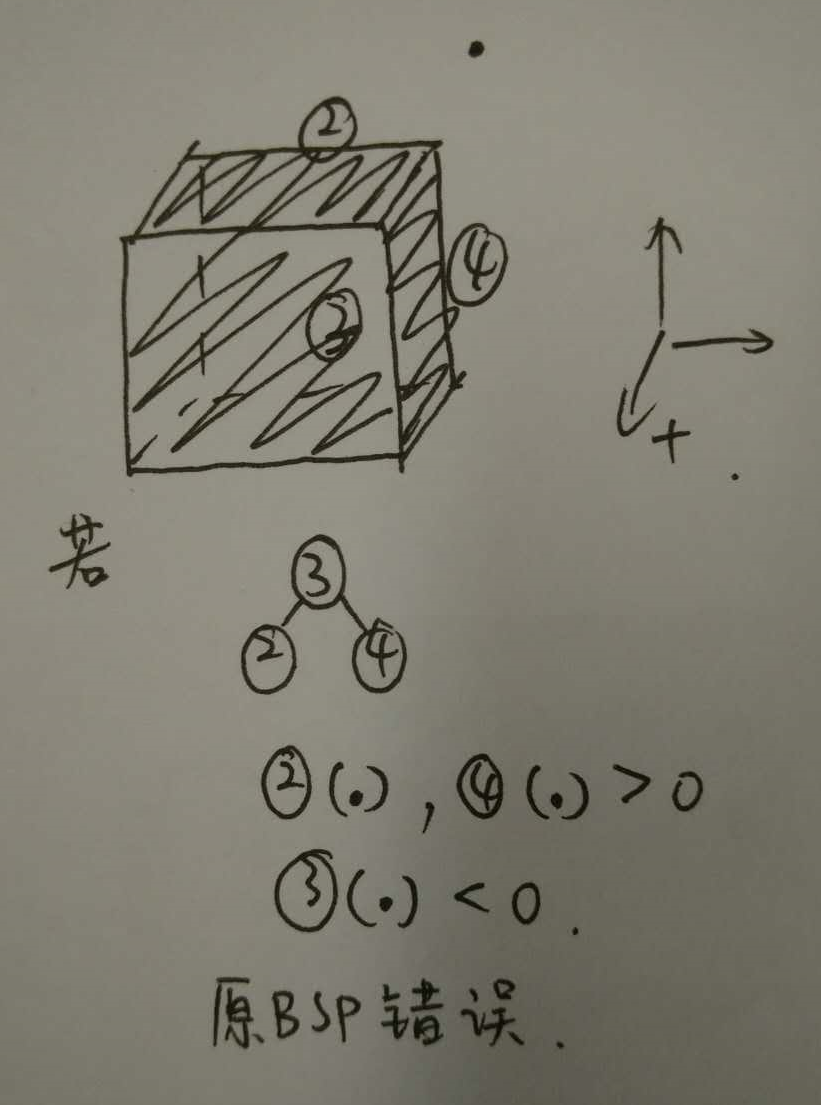 ②
④
③
+
若
③
② ④
②(.),④(.)>0
③(.)<0.
原BSP错误.